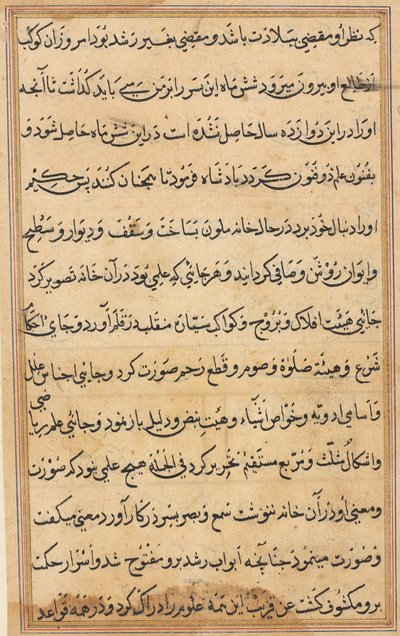 که نظر او مقضی ببلادت باشد و مقضی بغیر رشد بود امروز آن کوکب
از طالع او بیرون میرود شش ماه این پسر را بر من می باید گذاشت تا آنچه
او را در این دوازده سال حاصل نشده است در این شش ماه حاصل شود و
بفنون علم ذوفنون گردد پادشاه فرمود تا همچنان کنند پس حکیم
او را دنبال خود برد در حال خانه ملون بساخت و سقف و دیوار و سطح
و ایوان روشن و صافی گردانید و هر جائی که علمی بود در آن خانه تصویر کرد
جائی هیئت افلاک و بروج و کواکب سیاره منقلب در قلم آورد و جای احکام
شرع و هیئة صلوة و صوم و قطع رحم صورت کرد و جائی اجناس علل
و اسامی ادویه و خواص اشیاء و هیئت نبض و دلیل باز نمود و جائی علم ریاضی
و اشکال مثلث و مربع مستقیم تحریر کرد فی الجمله هیچ علمی نبود که صورت
و معنی او در آن خانه ننوشت سمع و بصر پسر در کار آورد معنی میگفت
و صورت مینمود چنانچه ابواب رشد برو مفتوح شد و اسرار حکمت
برو مکشوف گشت عن قریب این همه علوم را ادراک کرد و در همه قواعد